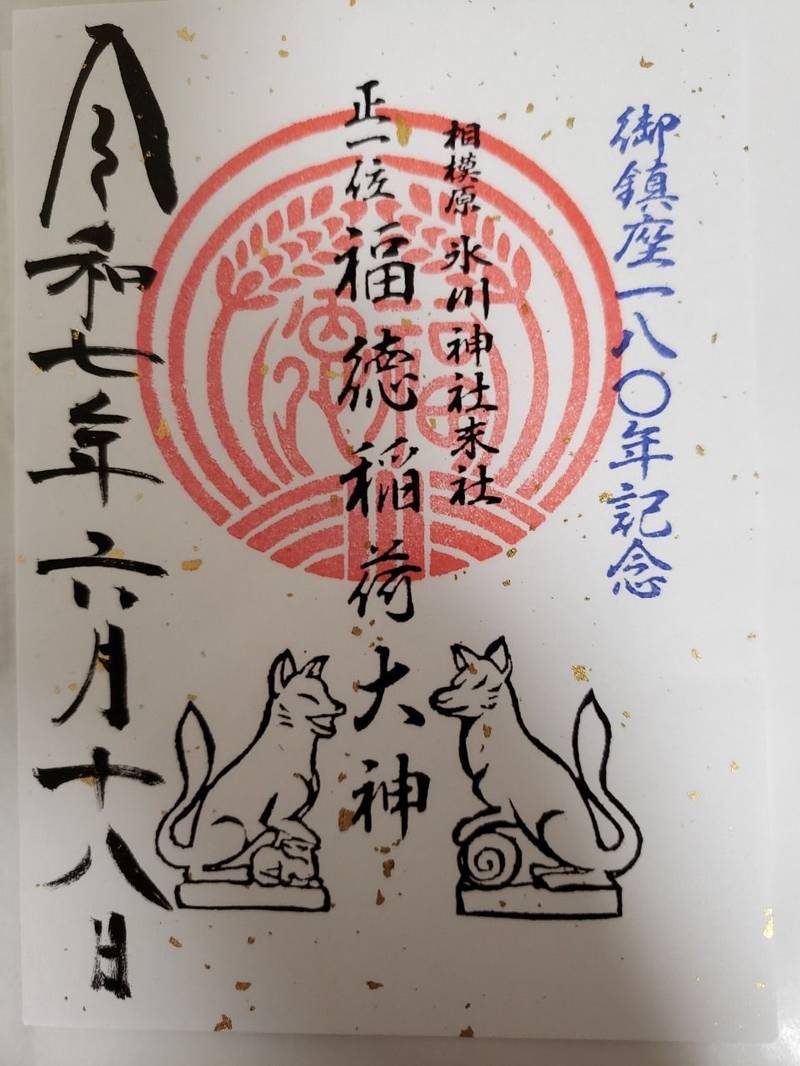 御鎮座一八〇年記念
相模原 氷川神社末社
正一位 福徳稲荷大神
令和七年六月十八日
福徳